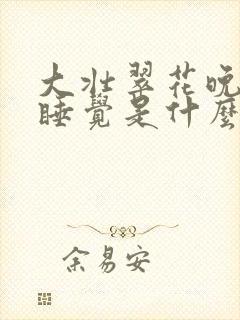 大壯翠花晚
睡覺是什麼
余易安